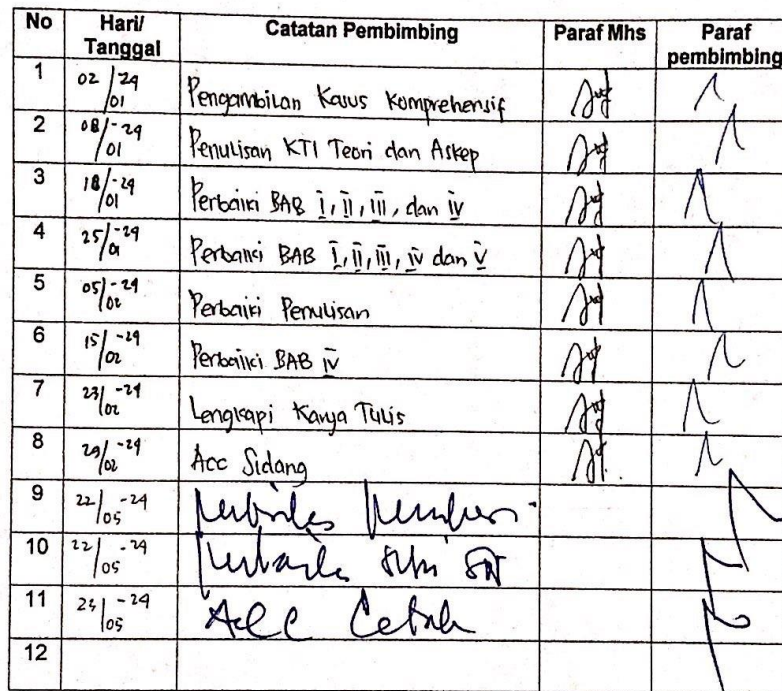 No Hari/ Tanggal Catatan Pembimbing Paraf Mhs Paraf pembimbing
1 02/01 -24 Pengambilan Kasus Komprehensif
2 08/01 -24 Penulisan KTI Teori dan Askep
3 18/01 -24 Perbaiki BAB I, II, III, dan IV
4 25/01 -24 Perbaiki BAB I, II, III, IV dan V
5 05/02 -24 Perbaiki Penulisan
6 15/02 -24 Perbaiki BAB IV
7 23/02 -24 Lengkapi Karya Tulis
8 29/02 -24 Acc Sidang
9 22/05 -24
10 22/05 -24
11 /05 -24 Acc Cetak
12